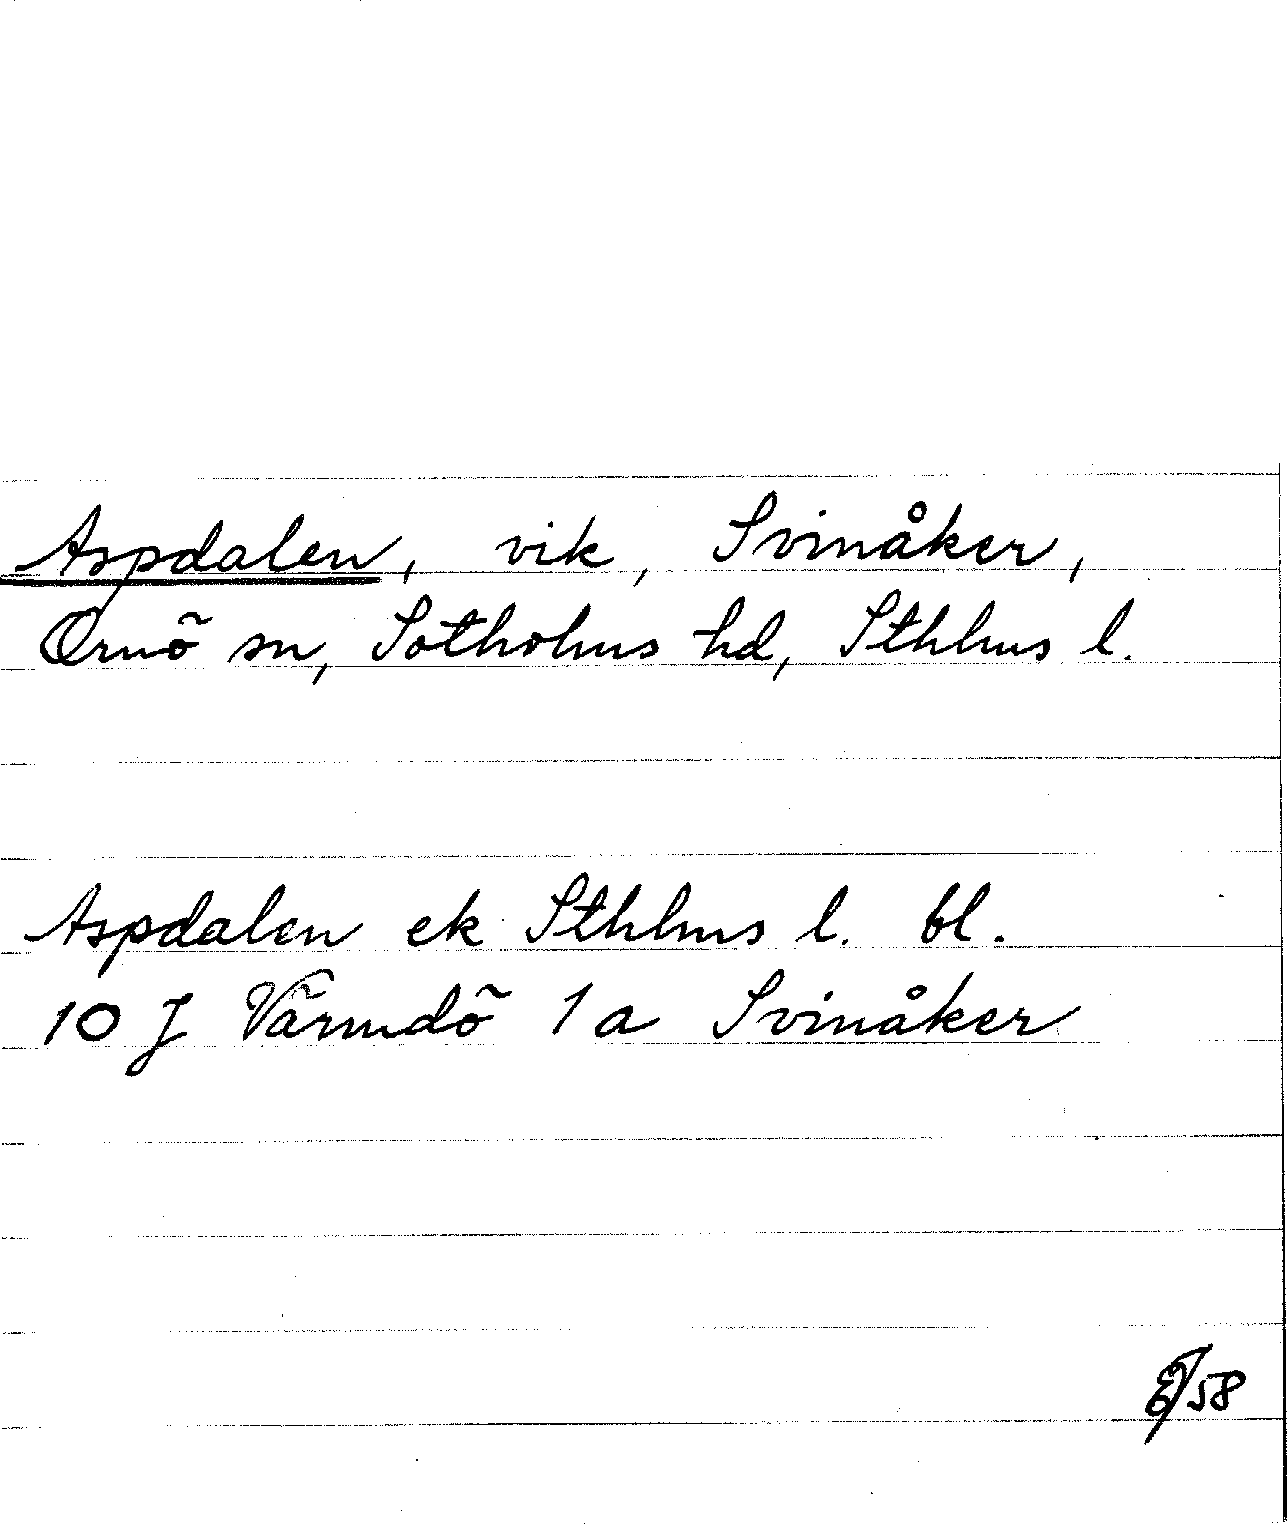 Aspdalen, vik, Svinåker,
Ornö sn, Sotholms hd, Sthlms l.
Aspdalen ek Sthlms l. bl.
10 J Värmdö 1 a Svinåker
58